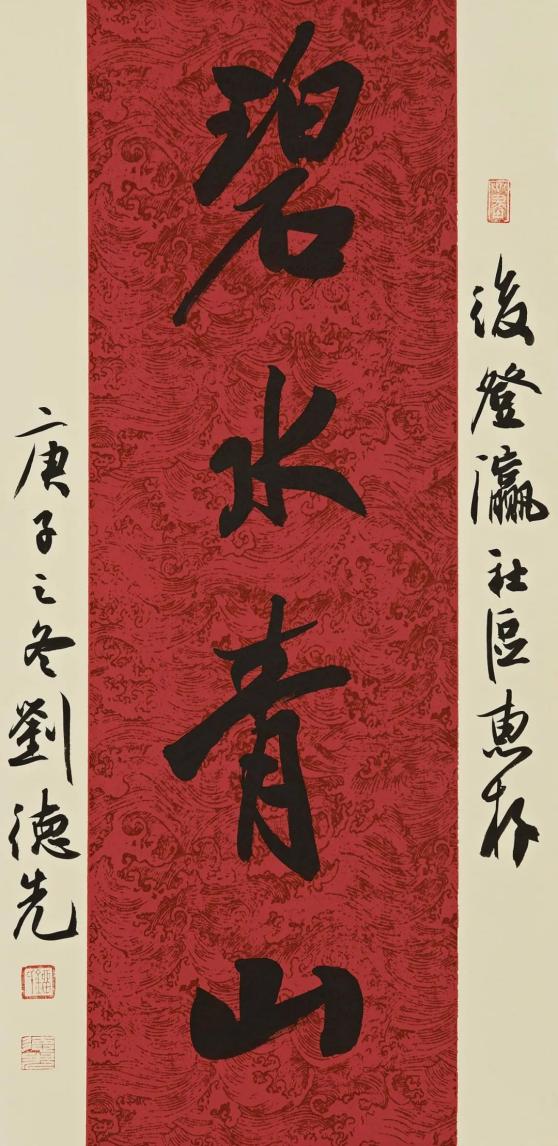 後登瀛社區惠存
碧水青山
庚子之冬劉德先